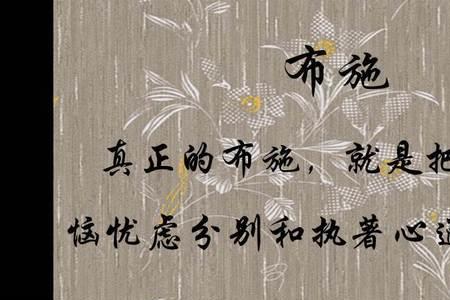 布施
真正的布施，就是把
恼忧虑分别和执著心